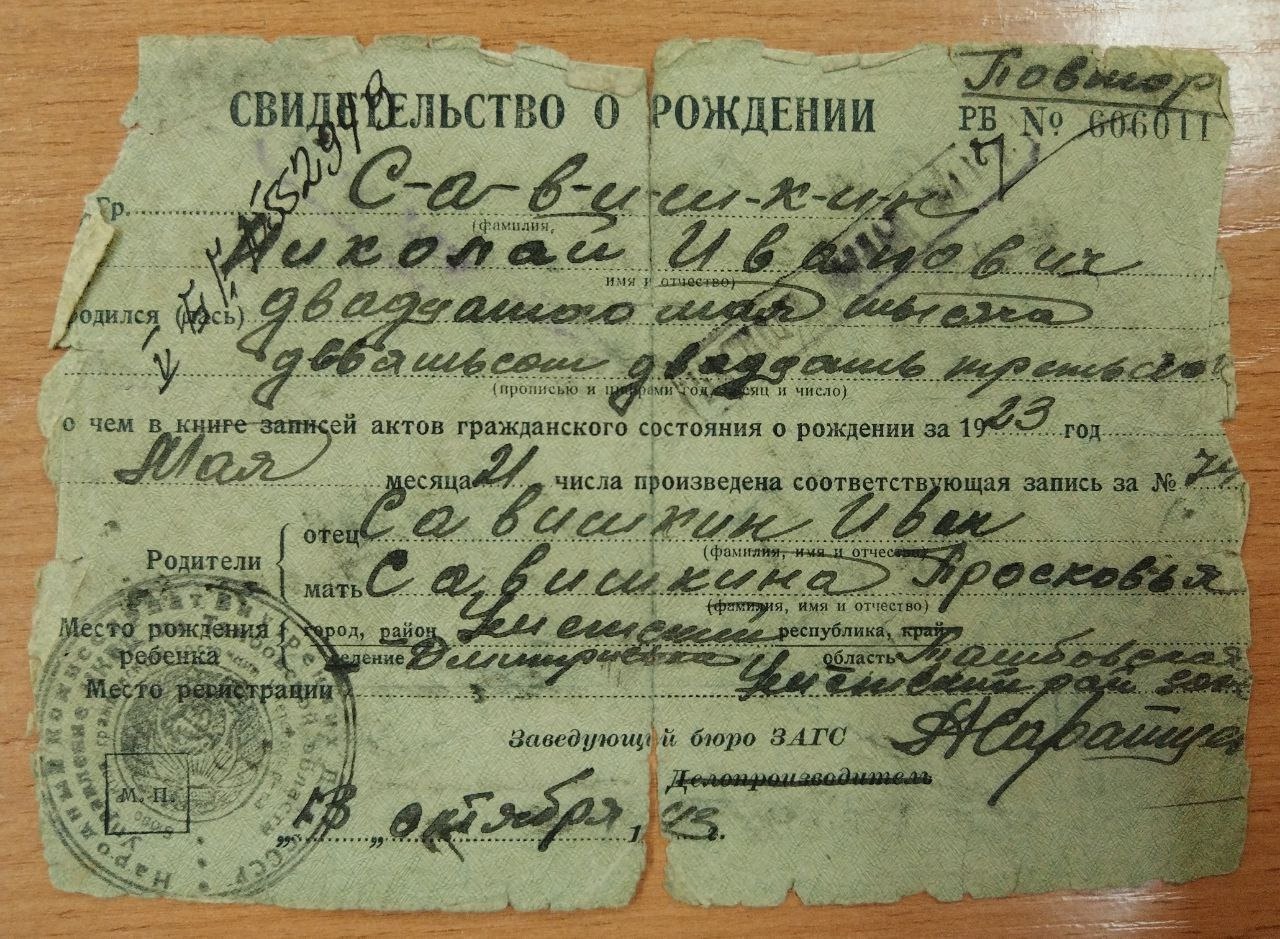 Повтор
СВИДЕТЕЛЬСТВО О РОЖДЕНИИ
РБ № 606011
552949
Гр. С-а-в-и-ш-к-и-н
(фамилия,
Николай Иванович
имя и отчество)
родился (лась) двадцатого мая тысяча
девятьсот двадцать третьего
(прописью и цифрами год, месяц и число)
о чем в книге записей актов гражданского состояния о рождении за 1923 год
Мая месяца 21 числа произведена соответствующая запись за №
Родители
отец Савишкин Иван
(фамилия, имя и отчество)
мать Савишкина Просковья
(фамилия, имя и отчество)
Место рождения ребенка
город, район республика, край
селение область Тамбовская
Место регистрации
Заведующий бюро ЗАГС
Делопроизводитель
М. П.
„ 18 „ октября 1 43 г.